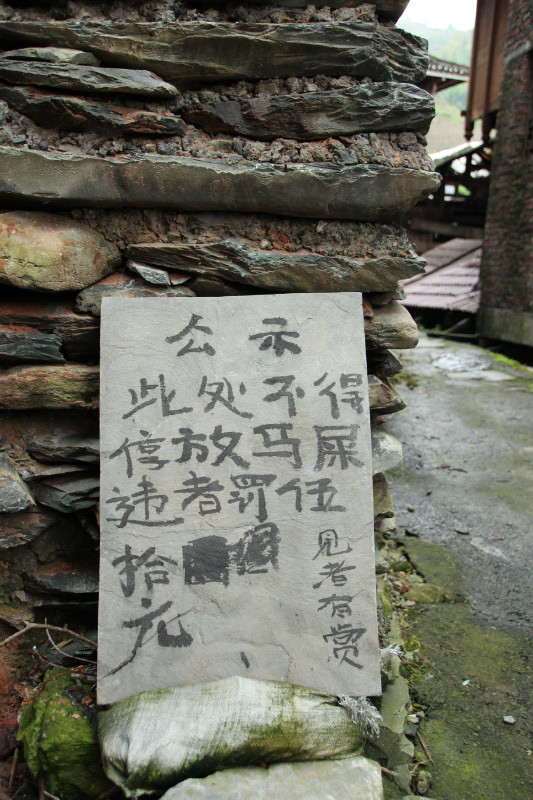 公示
此处不得
停放马屎
违者罚伍
拾
元
见者有赏